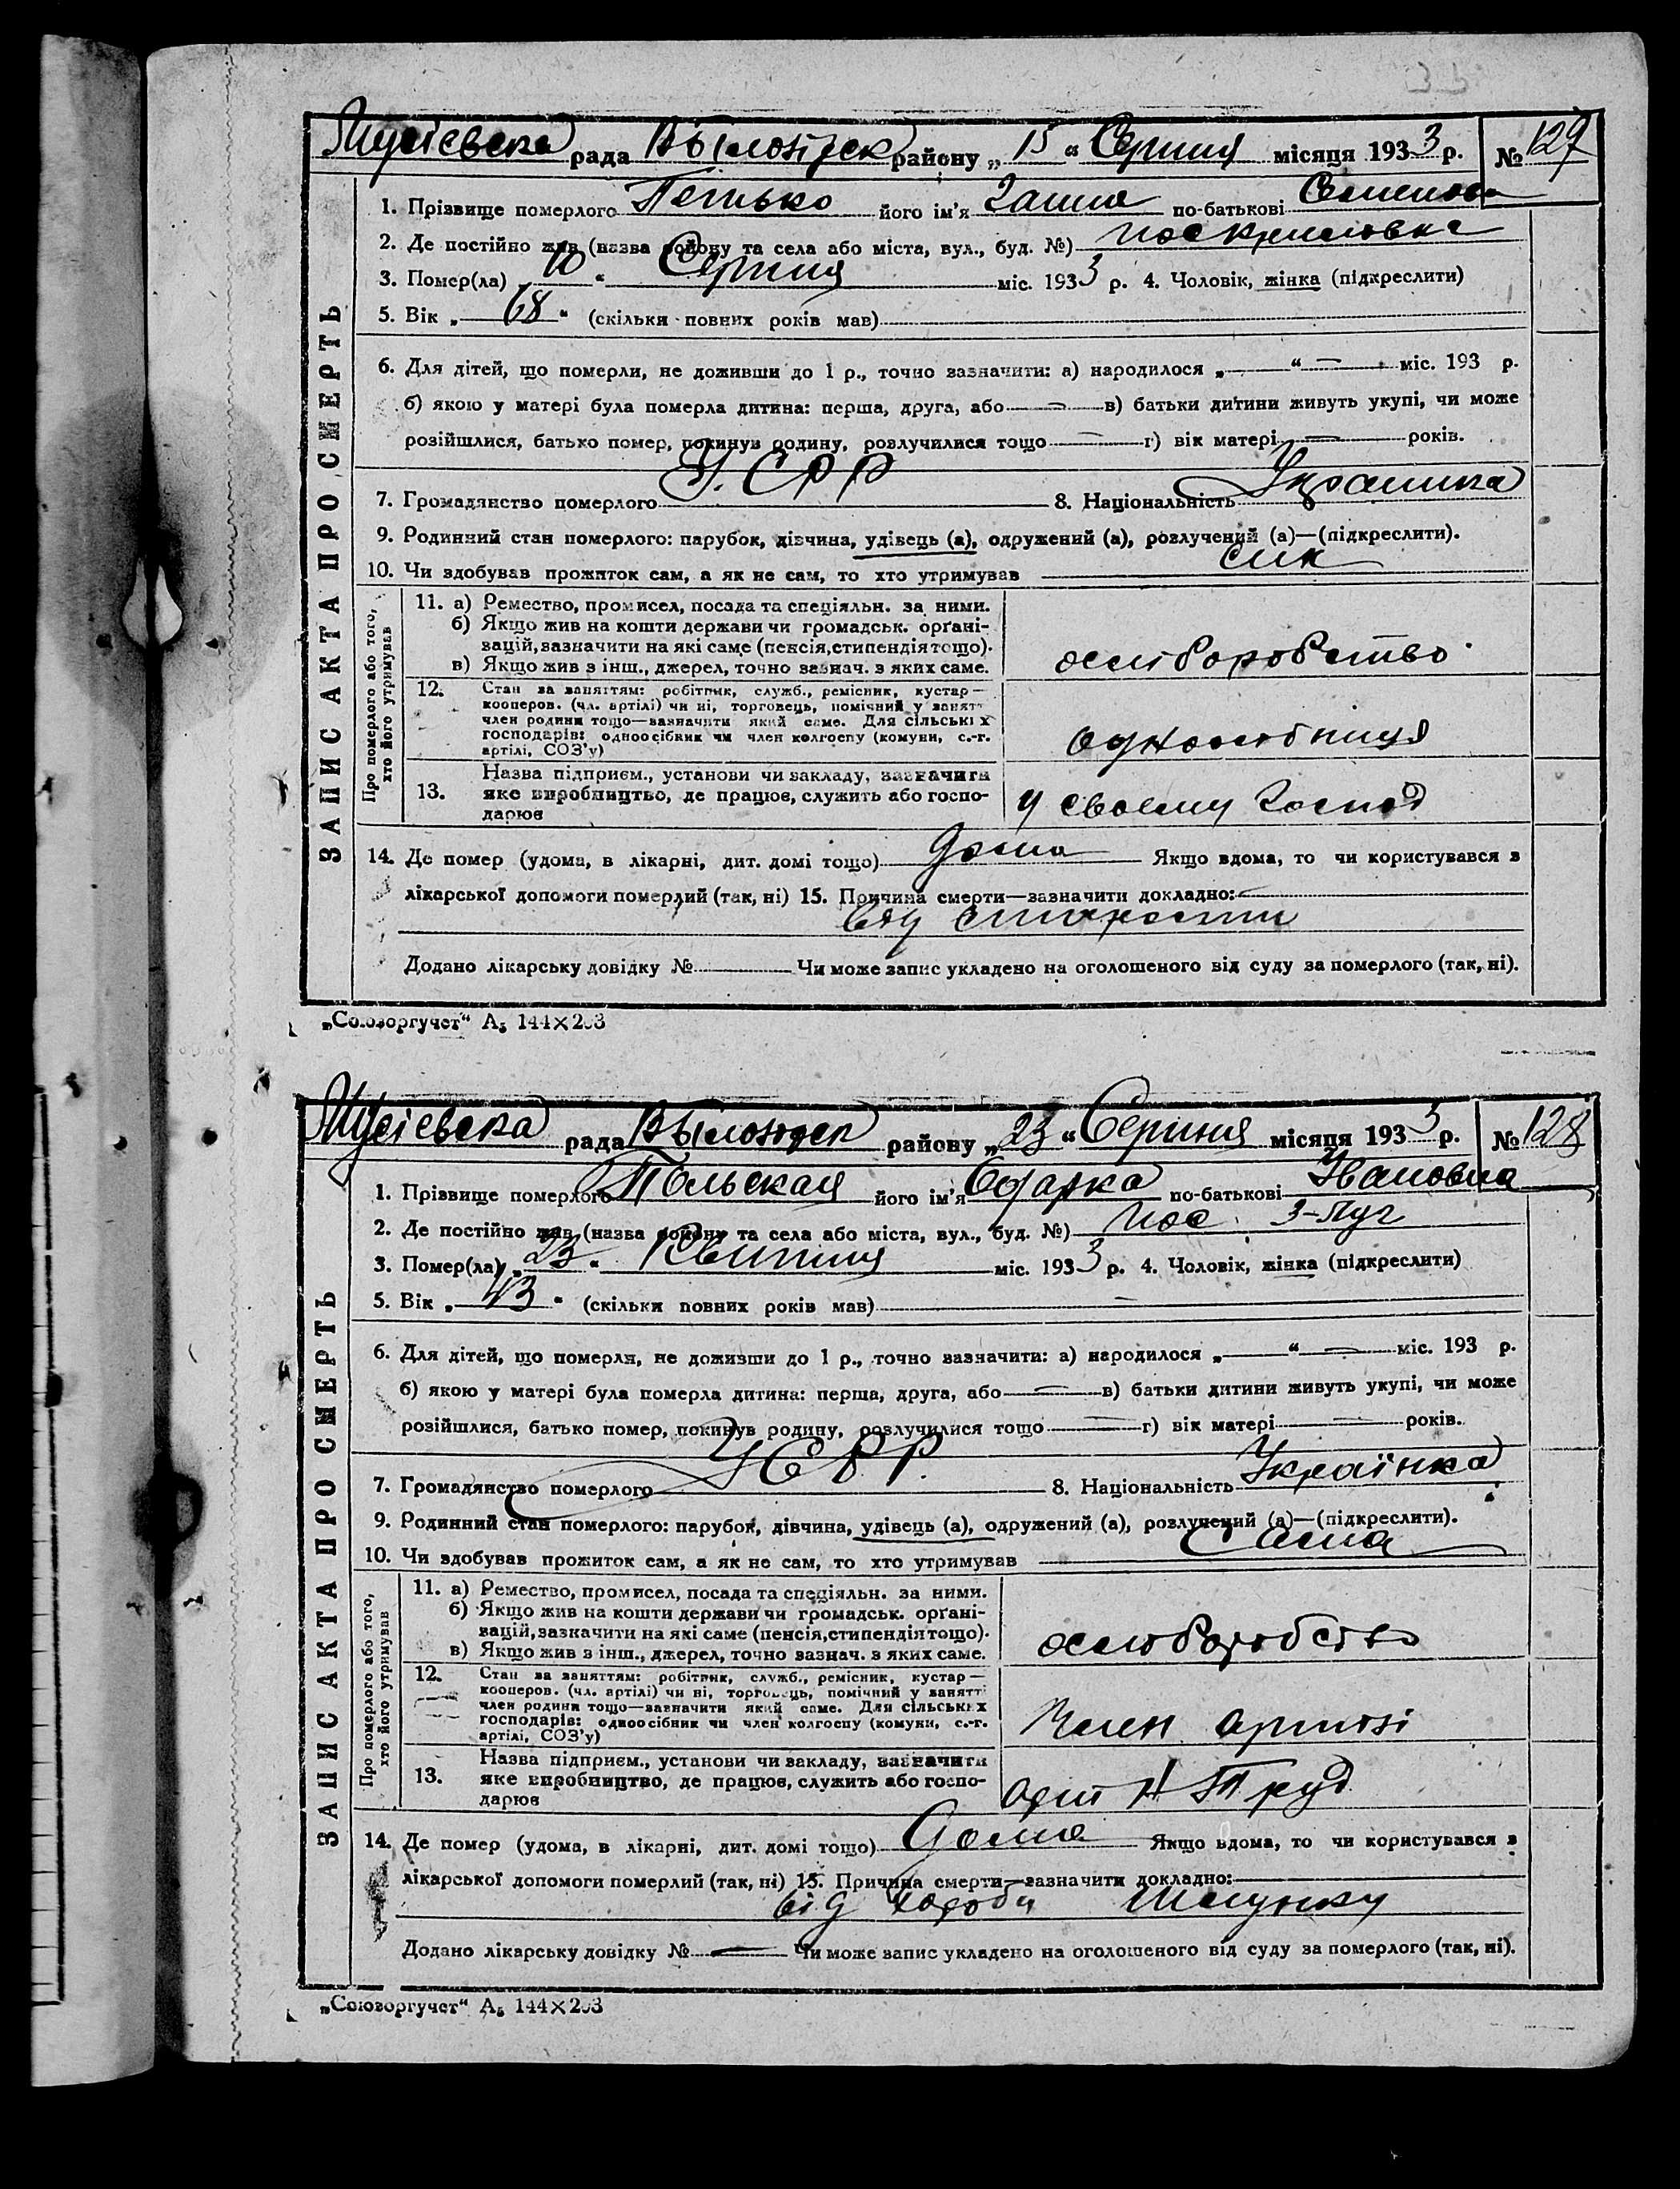 рада В Білозірск району „15“ Серпня місяця 1933 р. № 127
1. Прізвище померлого Петько його ім'я Ганна по-батькові
2. Де постійно жив (назва району та села або міста, вул., буд. №)
3. Помер(ла) „10“ Серпня міс. 1933 р. 4. Чоловік, жінка (підкреслити)
5. Вік „68“ (скільки повних років мав)
6. Для дітей, що померли, не доживши до 1 р., точно зазначити: а) народилося „—“ — міс. 193 р.
б) якою у матері була померла дитина: перша, друга, або — в) батьки дитини живуть укупі, чи може
розійшлися, батько помер, покинув родину, розлучилися тощо — г) вік матері — років.
7. Громадянство померлого У. СРР 8. Національність Украинка
9. Родинний стан померлого: парубок, дівчина, удівець (а), одружений (а), розлучений (а)—(підкреслити).
10. Чи здобував прожиток сам, а як не сам, то хто утримував син
ЗАПИС АКТА ПРО СМЕРТЬ
Про померлого або того, хто його утримував
11. а) Ремество, промисел, посада та спеціяльн. за ними.
б) Якщо жив на кошти держави чи громадськ. органі-
зацій, зазначити на які саме (пенсія, стипендія тощо).
в) Якщо жив з інш., джерел, точно зазнач. з яких саме.
хліборобство
12. Стан за заняттям: робітник, служб., ремісник, кустар—
кооперов. (чл. артілі) чи ні, торговець, помічний у занятт
член родини тощо—зазначити який саме. Для сільських
господарів: одноосібник чи член колгоспу (комуни, с.-г.
артілі, СОЗ'у)
одноосібниця
13. Назва підприєм., установи чи закладу, зазначити
яке виробництво, де працює, служить або госпо-
дарює
у своему господ
14. Де помер (удома, в лікарні, дит. домі тощо) дома Якщо вдома, то чи користувався з
лікарської допомоги померлий (так, ні) 15. Причина смерти—зазначити докладно:
від старости
Додано лікарську довідку № Чи може запис укладено на оголошеного від суду за померлого (так, ні).
„Союзоргучет“ А5 144×203
рада В Білозірск району „23“ Серпня місяця 1933 р. № 128
1. Прізвище померлого Польская його ім'я Одарка по-батькові Ивановна
2. Де постійно жив (назва району та села або міста, вул., буд. №) пос. 3-Луч
3. Помер(ла) „23“ Квитня міс. 1933 р. 4. Чоловік, жінка (підкреслити)
5. Вік „43“ (скільки повних років мав) —
6. Для дітей, що померли, не доживши до 1 р., точно зазначити: а) народилося „—“ — міс. 193 р.
б) якою у матері була померла дитина: перша, друга, або — в) батьки дитини живуть укупі, чи може
розійшлися, батько помер, покинув родину, розлучилися тощо — г) вік матері — років.
7. Громадянство померлого УСРР. 8. Національність Українка
9. Родинний стан померлого: парубок, дівчина, удівець (а), одружений (а), розлучений (а)—(підкреслити).
10. Чи здобував прожиток сам, а як не сам, то хто утримував сама
ЗАПИС АКТА ПРО СМЕРТЬ
Про померлого або того, хто його утримував
11. а) Ремество, промисел, посада та спеціяльн. за ними.
б) Якщо жив на кошти держави чи громадськ. органі-
зацій, зазначити на які саме (пенсія, стипендія тощо).
в) Якщо жив з інш., джерел, точно зазнач. з яких саме.
хліборобство
12. Стан за заняттям: робітник, служб., ремісник, кустар—
кооперов. (чл. артілі) чи ні, торговець, помічний у занятті
член родини тощо—зазначити який саме. Для сільських
господарів: одноосібник чи член колгоспу (комуни, с.-г.
артілі, СОЗ'у)
Член артілі
13. Назва підприєм., установи чи закладу, зазначити
яке виробництво, де працює, служить або госпо-
дарює
арт Н Труд
14. Де помер (удома, в лікарні, дит. домі тощо) дома Якщо вдома, то чи користувався з
лікарської допомоги померлий (так, ні) 15. Причина смерти—зазначити докладно:
від хороби шлунку
Додано лікарську довідку № — Чи може запис укладено на оголошеного від суду за померлого (так, ні).
„Союзоргучет“ А5 144×203